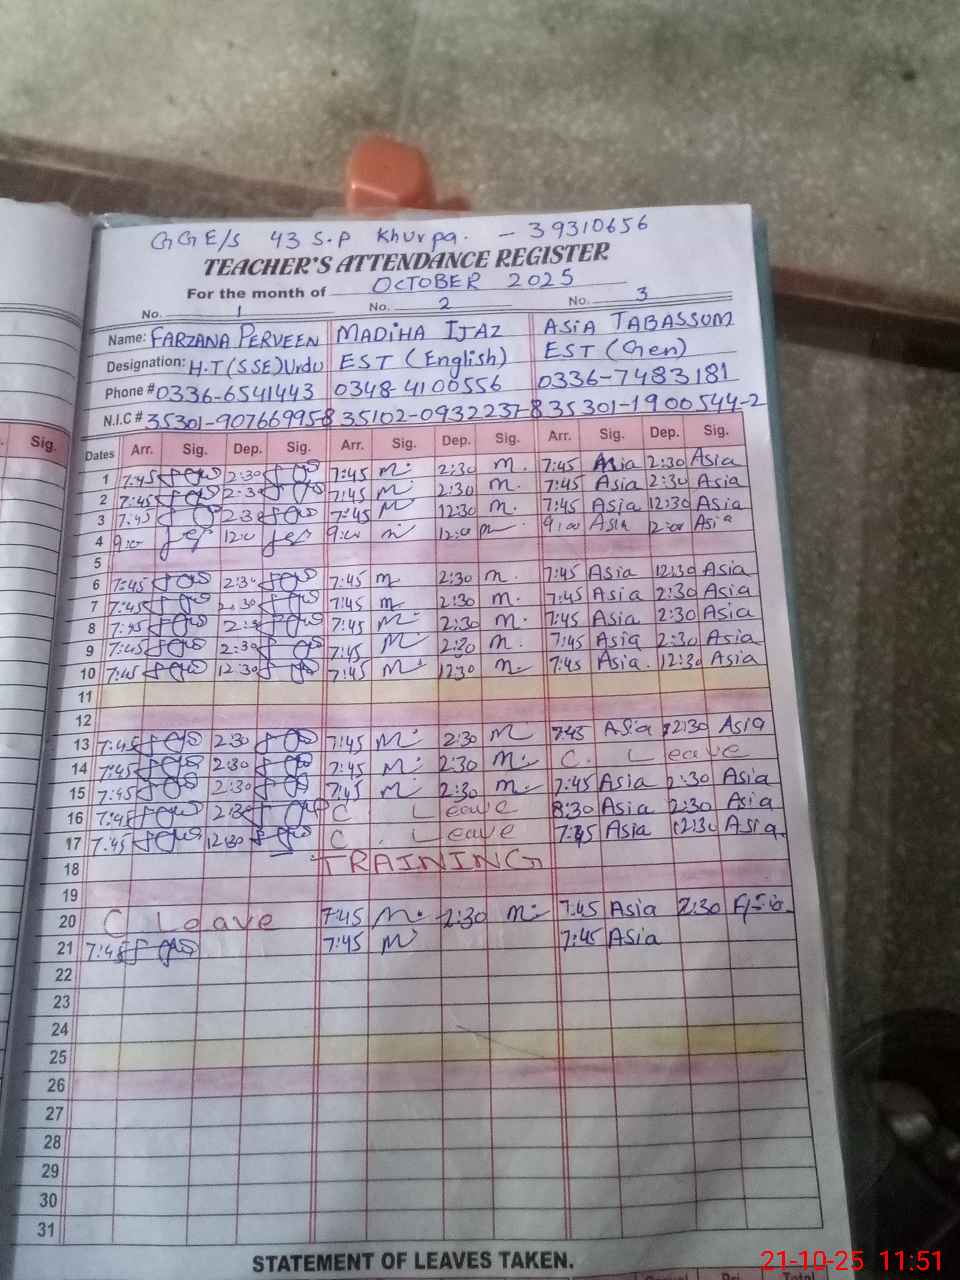 GGE/S 43 S.P Khurpa. - 39310656
TEACHER'S ATTENDANCE REGISTER
For the month of OCTOBER 2025
No. 1 No. 2 No. 3
Name: FARZANA PERVEEN MADIHA IJAZ ASIA TABASSUM
Designation: H.T (SSE) Urdu EST (English) EST (Gen)
Phone # 0336-6541443 0348-4100556 0336-7483181
N.I.C # 35301-90766995-8 35102-0932237-8 35301-1900544-2
Sig. Dates Arr. Sig. Dep. Sig. Arr. Sig. Dep. Sig. Arr. Sig. Dep. Sig.
1 7:45 2:30 7:45 m. 2:30 m. 7:45 Asia 2:30 Asia
2 7:45 2:30 7:45 m 2:30 m. 7:45 Asia 2:30 Asia
3 7:45 2:30 7:45 m 12:30 m. 7:45 Asia 12:30 Asia
4 9:00 12:0 9:00 m 12:00 m. 9:00 Asia 12:00 Asia
5
6 7:45 2:30 7:45 m 2:30 m. 7:45 Asia 12:30 Asia
7 7:45 2:30 7:45 m 2:30 m. 7:45 Asia 2:30 Asia
8 7:45 2:30 7:45 m 2:30 m. 7:45 Asia 2:30 Asia
9 7:45 2:30 7:45 m 2:30 m 7:45 Asia 2:30 Asia
10 7:45 12:30 7:45 m 12:30 m. 7:45 Asia. 12:30 Asia
11
12
13 7:45 2:30 7:45 m. 2:30 m 7:45 Asia 2:30 Asia
14 7:45 2:30 7:45 m. 2:30 m. C. Leave
15 7:45 2:30 7:45 m 2:30 m. 7:45 Asia 2:30 Asia
16 7:45 2:30 C. Leave 8:30 Asia 2:30 Asia
17 7:45 12:30 C. Leave 7:45 Asia 12:30 Asia.
18 TRAINING
19
20 C Leave 7:45 m. 2:30 m. 7:45 Asia 2:30 Asia
21 7:45 7:45 m 7:45 Asia
22
23
24
25
26
27
28
29
30
31
STATEMENT OF LEAVES TAKEN.
21-10-25 11:51
Total